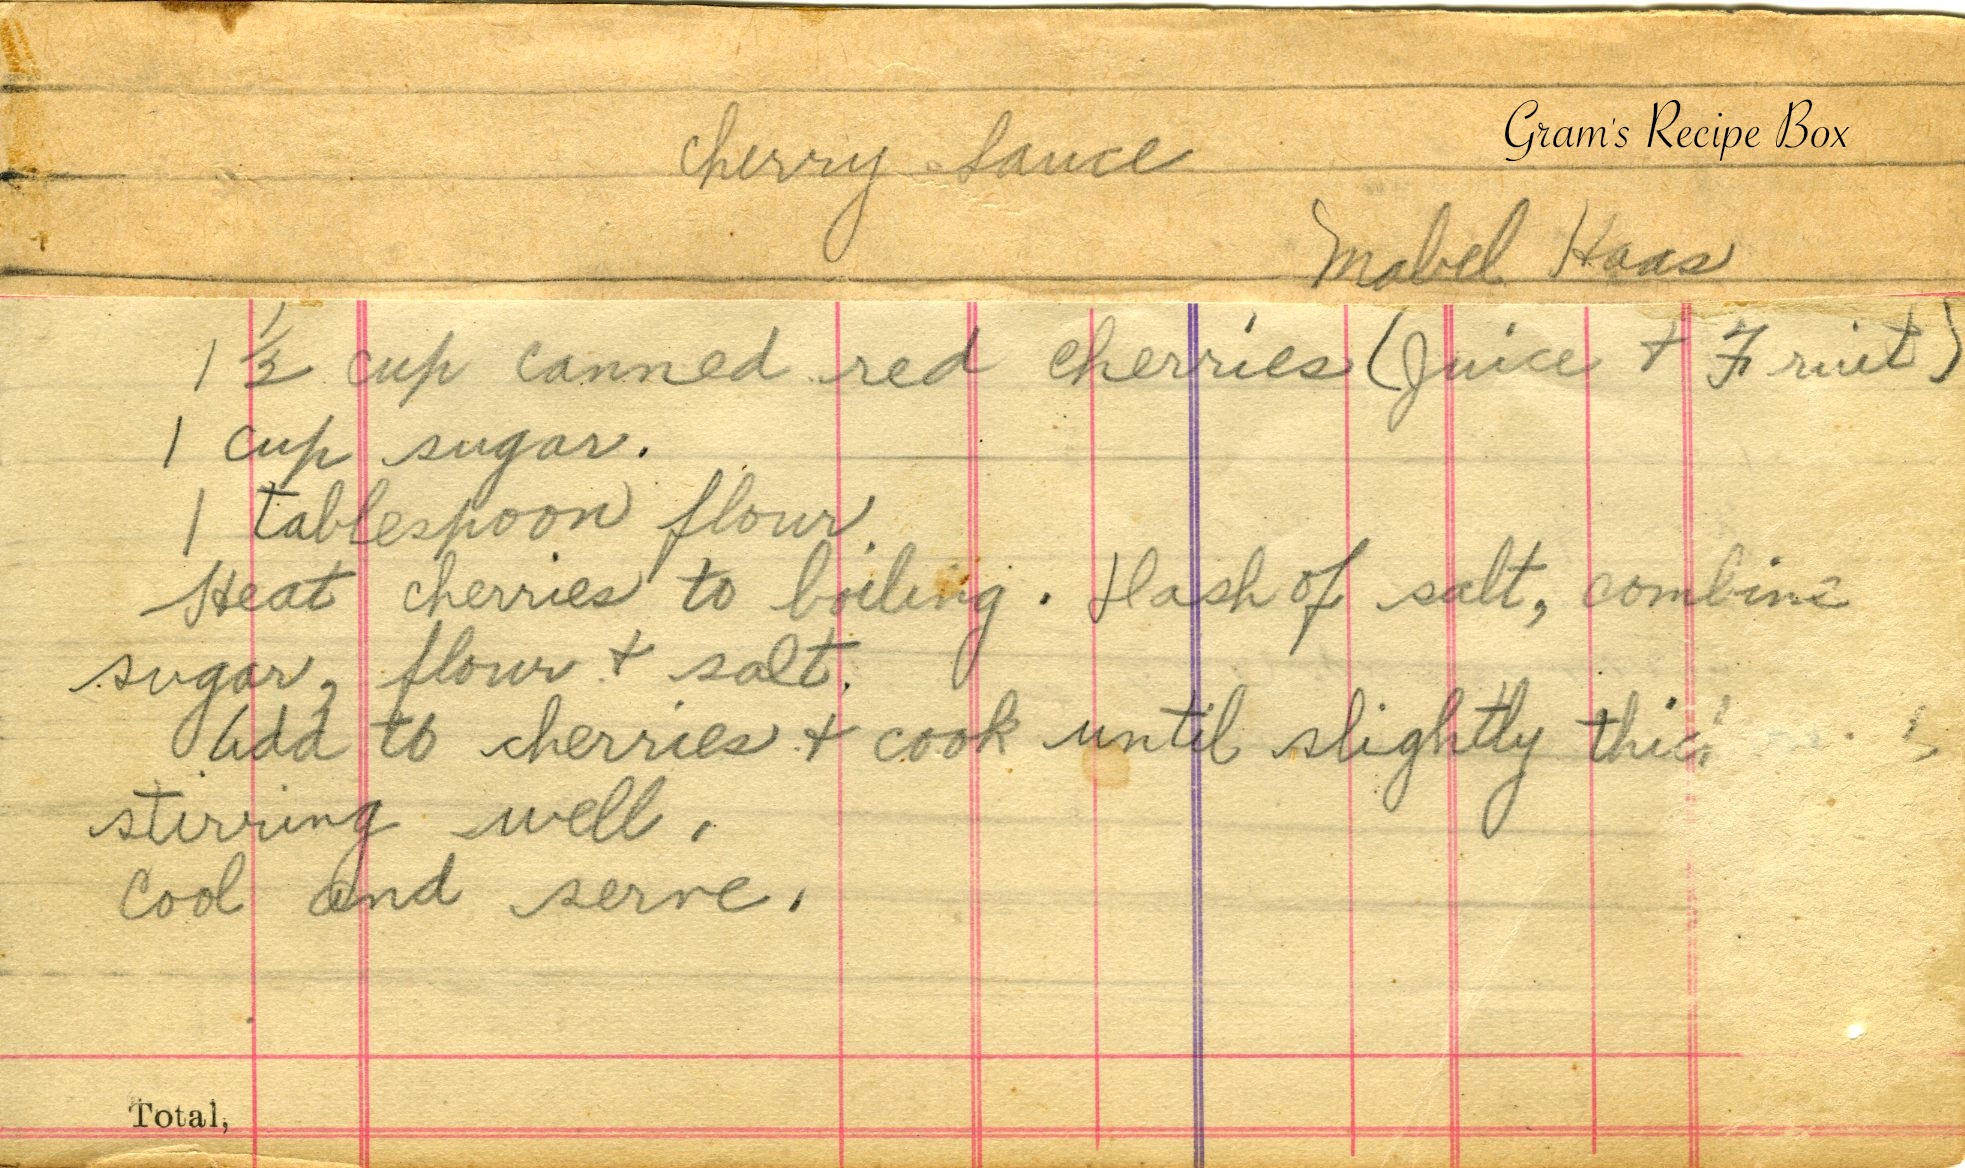 Gram's Recipe Box
Cherry Sauce
Mabel Haas
1 1/2 cup canned red cherries (Juice + Fruit)
1 cup sugar.
1 tablespoon flour.
Heat cherries to boiling. Dash of salt, combine
sugar, flour + salt.
Add to cherries + cook until slightly thic
stirring well.
Cool and serve.
Total,